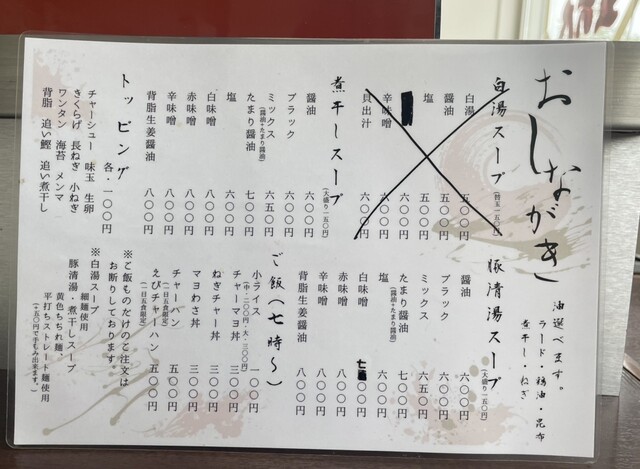 おしながき
油選べます。
ラード・鶏油・昆布
煮干し・ねぎ
白湯スープ(替玉一五〇円)
白湯 五〇〇円
醤油 五〇〇円
塩 五〇〇円
六〇〇円
辛味噌 六〇〇円
貝出汁 六〇〇円
煮干しスープ(大盛り一五〇円)
醤油 六〇〇円
ブラック 六〇〇円
ミックス 六五〇円
(醤油+たまり醤油)
たまり醤油 七〇〇円
塩 六〇〇円
白味噌 八〇〇円
赤味噌 八〇〇円
辛味噌 八〇〇円
背脂生姜醤油 八〇〇円
トッピング
各・一〇〇円
チャーシュー 味玉 生卵
きくらげ 長ねぎ 小ねぎ
ワンタン 海苔 メンマ
背脂 追い鰹 追い煮干し
豚清湯スープ(大盛り一五〇円)
醤油 六〇〇円
ブラック 六〇〇円
ミックス 六五〇円
(醤油+たまり醤油)
たまり醤油 七〇〇円
塩 六〇〇円
白味噌 七 円
赤味噌 八〇〇円
辛味噌 八〇〇円
背脂生姜醤油 八〇〇円
ご飯(七時〜)
小ライス 一〇〇円
(中・二〇〇円・大・三〇〇円)
チャーマヨ丼 三〇〇円
ねぎチャー丼 三〇〇円
マヨわさ丼 三〇〇円
チャーハン 五〇〇円
(一日五食限定)
えびチャーハン 五〇〇円
(一日五食限定)
※ご飯ものだけのご注文は
お断りしております。
※白湯スープ
細麺使用
豚清湯・煮干しスープ
黄色ちぢれ麺、
平打ちストレート麺使用
(+五〇円で手もみ出来ます。)